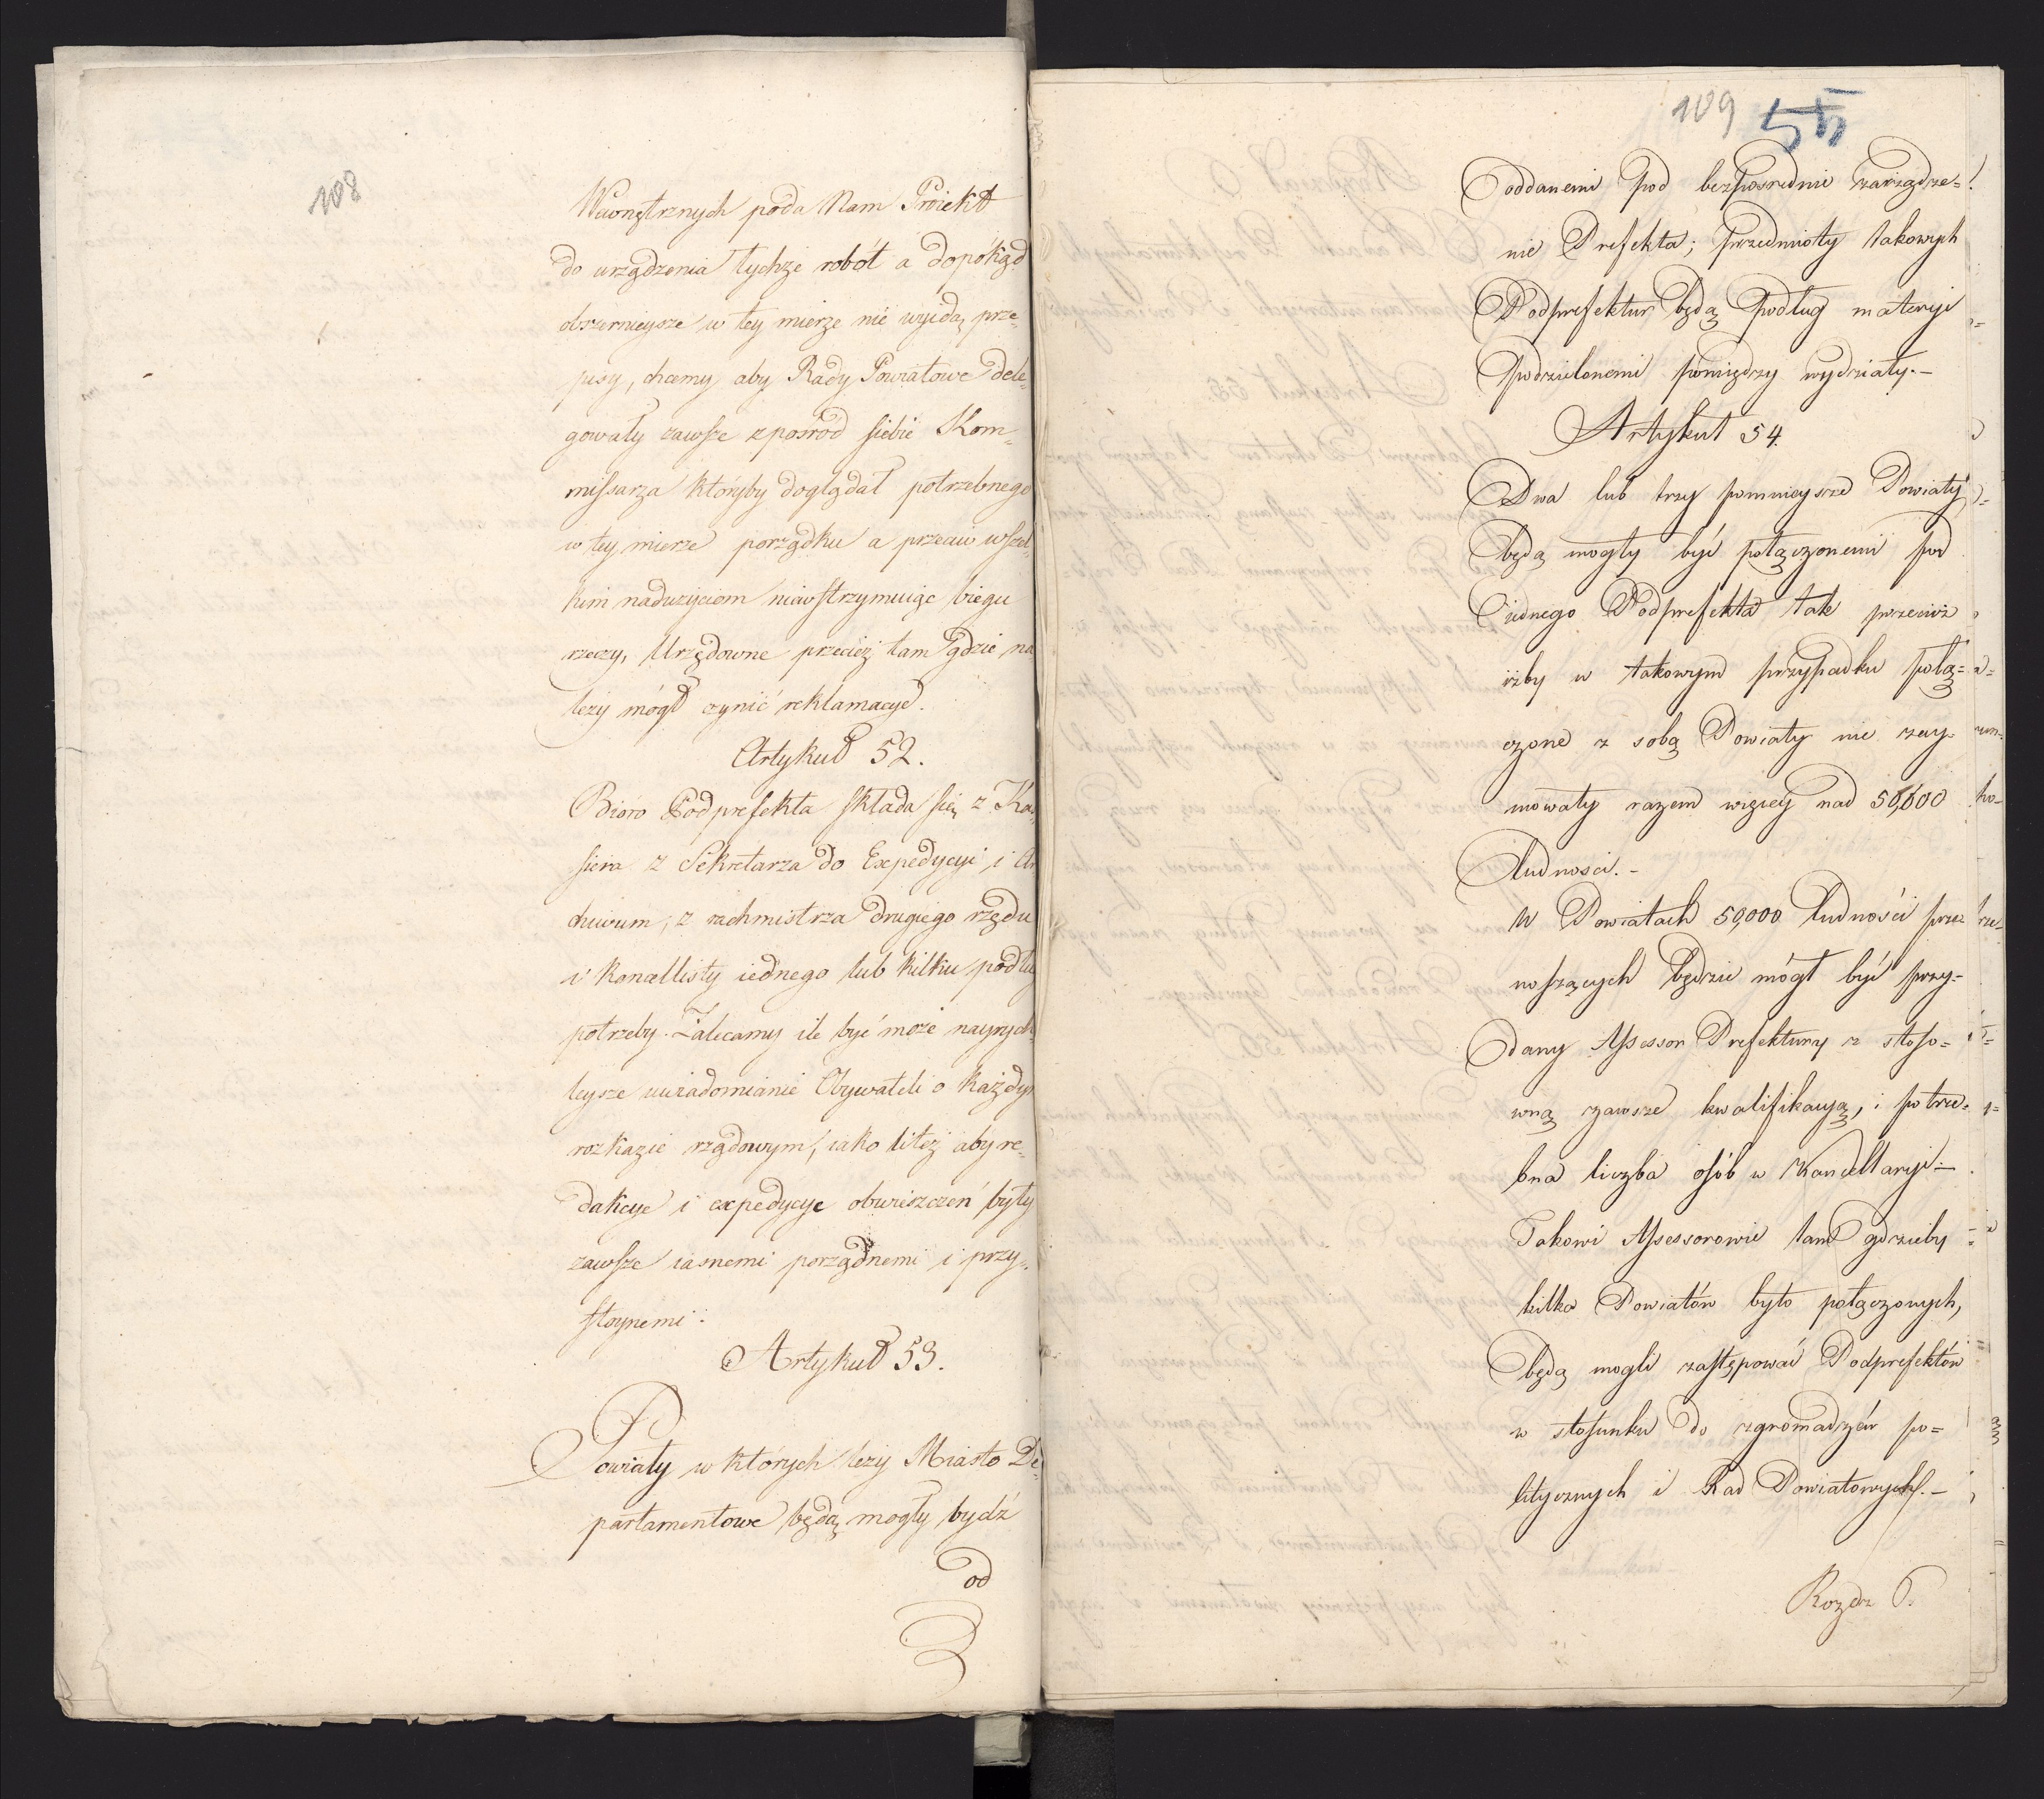 108
Wewnętrznych poda Nam Proiekt
do urządzenia tychże robót a dopókąd
obszernieysze w tey mierze nie wyidą prze-
pisy, chcemy aby Rady Powiatowe dele-
gowały zawsze zpośród siebie Kom-
missarza któryby doglądał potrzebnego
w tey mierze porządku a przeciw wszel-
kim nadużyciom niewstrzymuiąc biegu
rzeczy, Urzędowne przecież tam gdzie na
leży mógł czynić reklamacye.
Artykuł 52.
Bióro Podprefekta składa się z Ka-
siera z Sekretarza do Expedycyi i Ar
chiwum, z rachmistrza drugiego rzędu
i Kancellisty iednego lub kilku podłu
potrzeby. Zalecamy ile być może nayrych
leysze uwiadomianie Obywateli o każdym
rozkazie rządowym, iako też aby re-
dakcye i expedycye obwieszczeń były
zawsze iasnemi porządnemi i przy-
stoynemi.
Artykuł 53.
Powiaty w których leży Miasto De-
partamentowe będą mogły bydź
od
109 55
oddanemi pod bezpośrednie zarządze-
nie Prefekta; przedmioty takowych
Podprefektur będą podług materyi
podzielonemi pomiędzy wydziały.-
Artykuł 54.
Dwa lub trzy pomnieysze Powiaty
będą mogły być połączonemi pod
iednego Podprefekta tak przecież
iżby w takowym przypadku połą-
czone z sobą Powiaty nie zay-
mowały razem więcey nad 50,000
ludności.-
W Powiatach 50,000 ludności prze-
noszących będzie mógł być przy-
dany Assessor Prefektury z stoso-
wną zawsze kwalifikacyą, i potrze-
bna liczba osób w Kancellaryi.-
Takowi Assessorowie tam gdzieby
kilka Powiatów było połączonych,
będą mogli zastępować Podprefektów
w stosunku do zgromadzeń po-
litycznych i Rad Powiatowych.-
Rozdz 6.